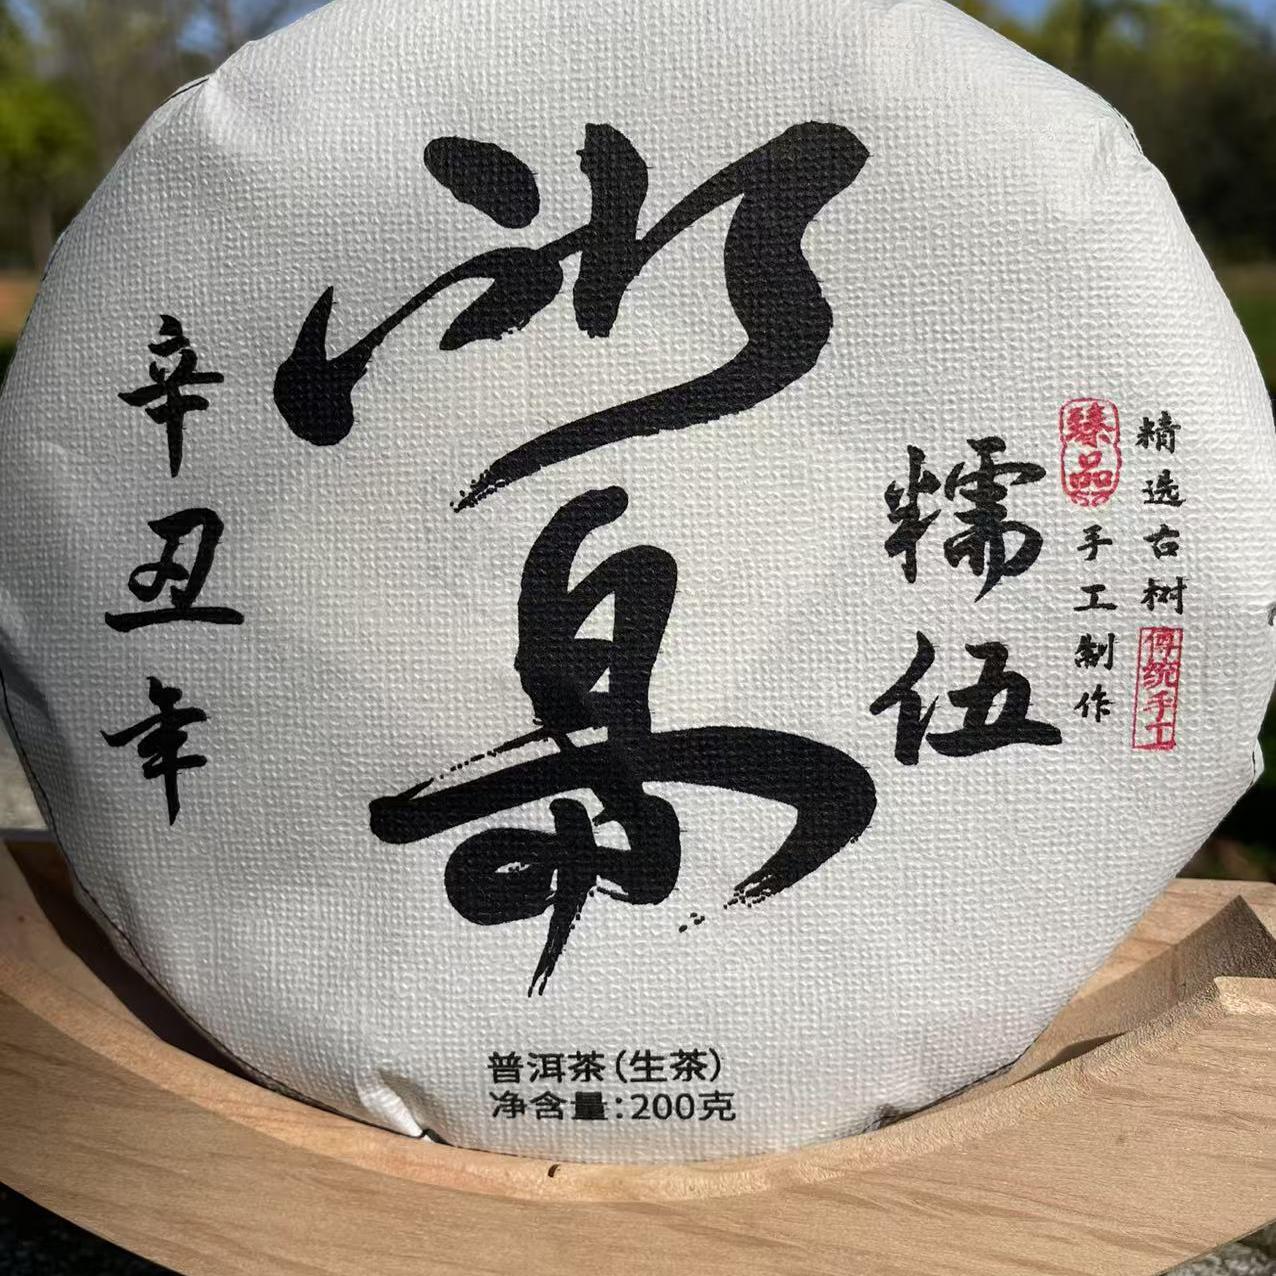 精选古树
傳统手工
臻品
手工制作
糯伍
冰島
辛丑年
普洱茶(生茶)
净含量:200克